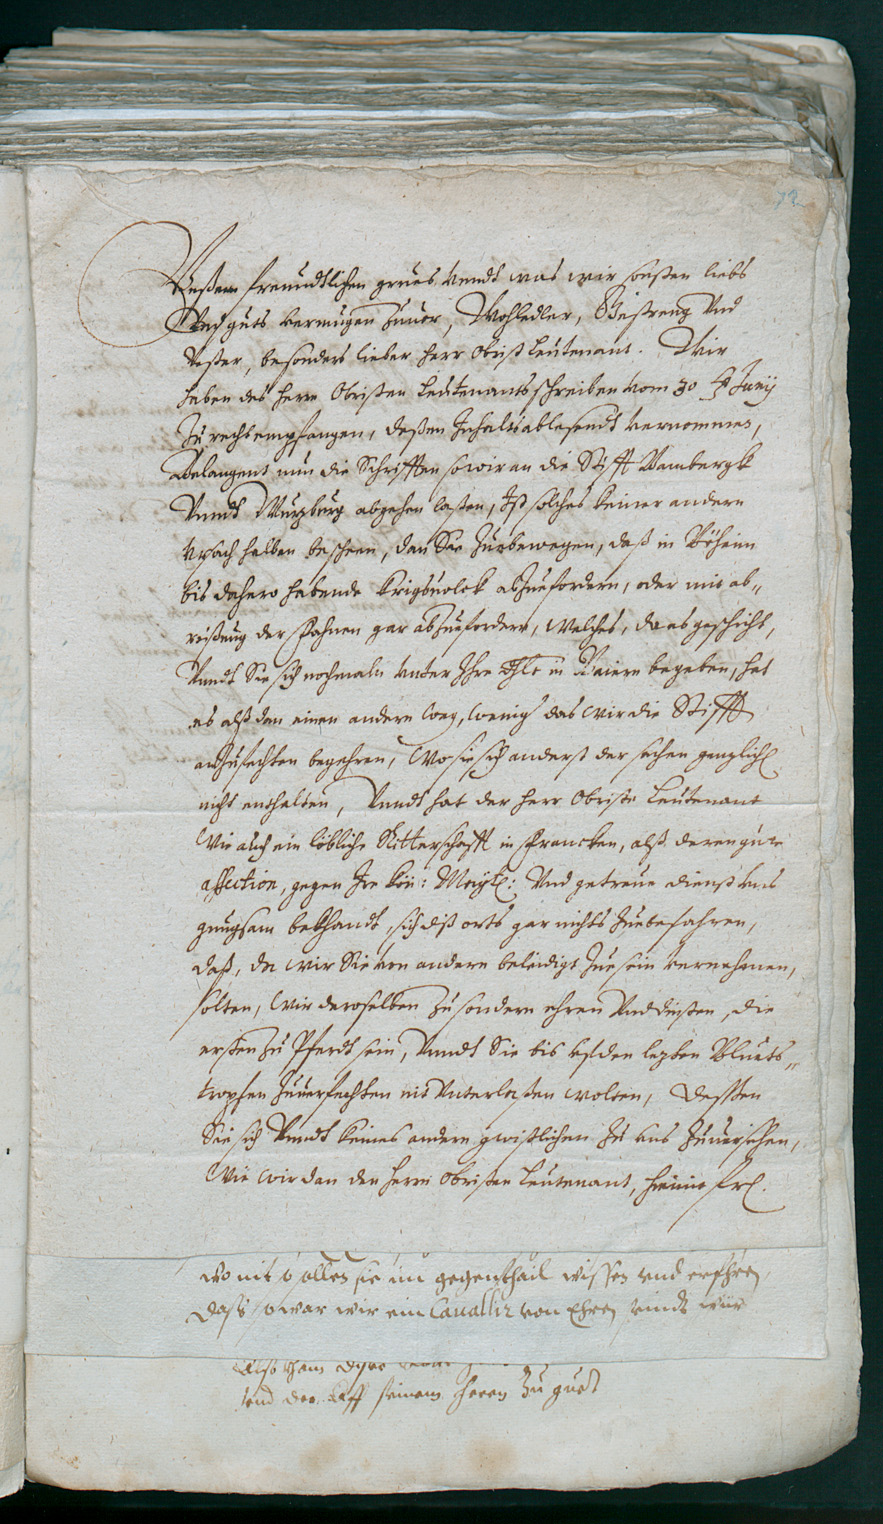 72
Unßern freundtlichen grues vundt was wir sonsten liebs
Und guts vermugen zuuor, Wohledler, Gestreng Und
Vester, besonders lieber herr Obrist Leutenant. Wir
haben des herrn Obristen Leutenants schreiben vom 30 Junij
Zu recht empfangen, deßen Inhalts ablesendt vernommen,
Belangent nun die Schrifften so wir an die Stifft Bambergk
Vnndt Wurzburg abgehen laßen, Ist solches keiner andern
Vrsach halben beschehen, dan Sie Zuebewegen, daß in Böheim
bis dahero habende Krigsuolck abzuefordern, oder mit ab„
reißung der Fahnen gar abzuefordern, Welches, da es geschicht,
Vnndt Sie sich nochmaln vnter Ihre Dhlt in Baiern begeben, hat
es alß dan einen andern weg, wenigs das wir die Stifft
anzufechten begehren, Wo sie sich anderst der sachen genzlich
nicht enthalten, Vnndt hat der herr Obriste Leutenant
Wie auch ein löbliche Ritterschafft in Francken, alß deren gute
affection, gegen Ire Kön: Maytt: Und getreue dienst uns
gnugsam bekhandt, sich diß orts gar nichts Zuebefahren,
daß, da wir Sie von andern beleidigt Zue sein vernehmen,
solten, Wir deroselben Zu sondern ehren Und diensten, die
ersten Zu Pferdt sein, Vnndt Sie bis uf den lezten Bluets„
tropfen Zuuerfechten nit Vnterlaßen wolten, Deßen
Sie sich Vnndt keines andern gwißlichen Zu uns Zuuersehen,
Wie wir dan den herrn Obristen Leutenant, hiemit
wo nit sollen sie im gegenthail wissen vnd erfahren
Dass so war wir ein Cauallir von Ehren sindt wiir
Also
vnd der seinem herrn Zu guet